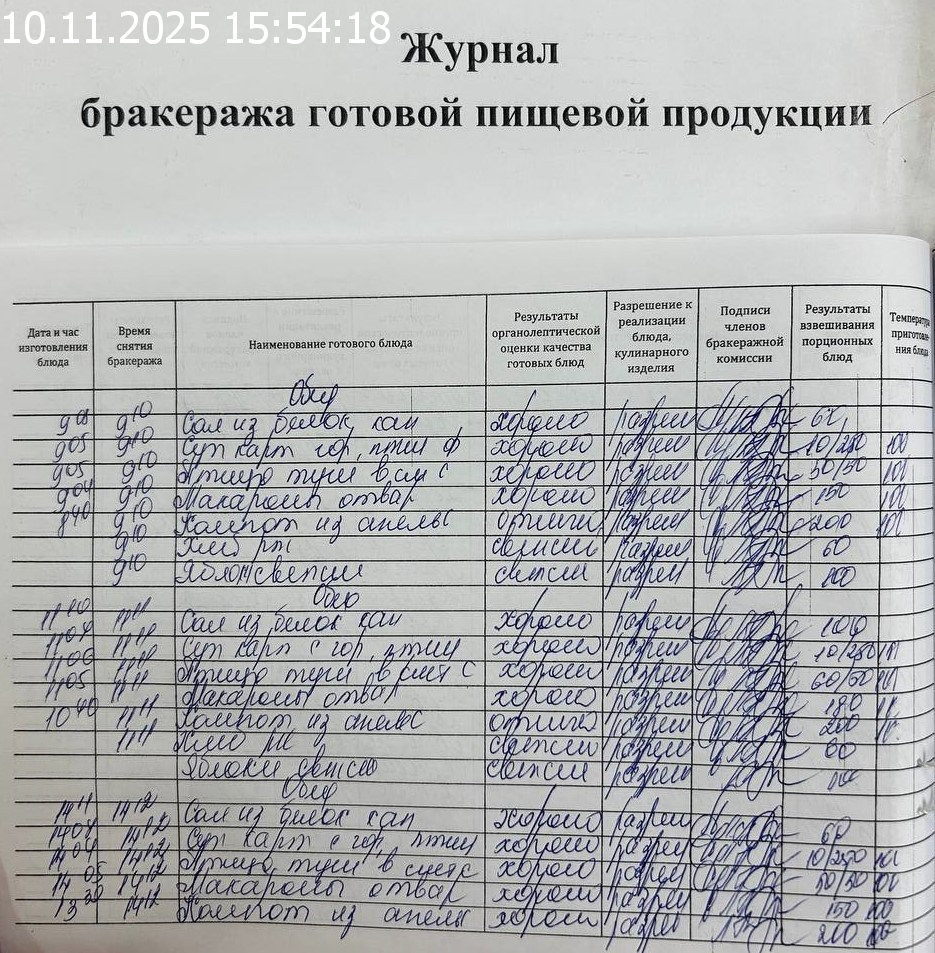 10.11.2025 15:54:18
Журнал
бракеража готовой пищевой продукции
Дата и час изготовления блюда Время снятия бракеража Наименование готового блюда Результаты органолептической оценки качества готовых блюд Разрешение к реализации блюда, кулинарного изделия Подписи членов бракеражной комиссии Результаты взвешивания порционных блюд Температура приготовле- ния блюд
Обед
9 08 9 10 Сал из белок кап хорошо разреш 60
9 05 9 10 Суп карт гор, птиц ф хорошо разреш 10/250 100
9 05 9 10 Птица туш в см с хорошо разреш 50/50 101
9 04 9 10 Макароны отвар хорошо разреш 150 101
8 40 9 10 Компот из апельс отлич разреш 200 101
9 10 Хлеб рж свежий разреш 60
9 10 свежии разреш 100
Обед
11 10 11 11 Сал из белок кап хорошо разреш 100
11 07 11 11 Суп карт с гор, птиц хорошо разреш 10/250
11 06 11 11 Птица туш в смет с хорошо разреш 60/50
11 05 11 11 Макароны отвар хорошо разреш 180
10 40 11 11 Компот из апельс разреш 200
11 11 свежии разреш 60
Яблоки свежие свежии разреш
Обед
14 11 14 12 Сал из белок кап хорошо разреш 60
14 12 Суп карт с гор, птиц хорошо разреш 10/250
14 12 Птица туш в смет с хорошо разреш 50/50 100
14 05 14 12 Макароны отвар хорошо разреш 150 100
13 30 14 12 Компот из апельс хорош разреш 200